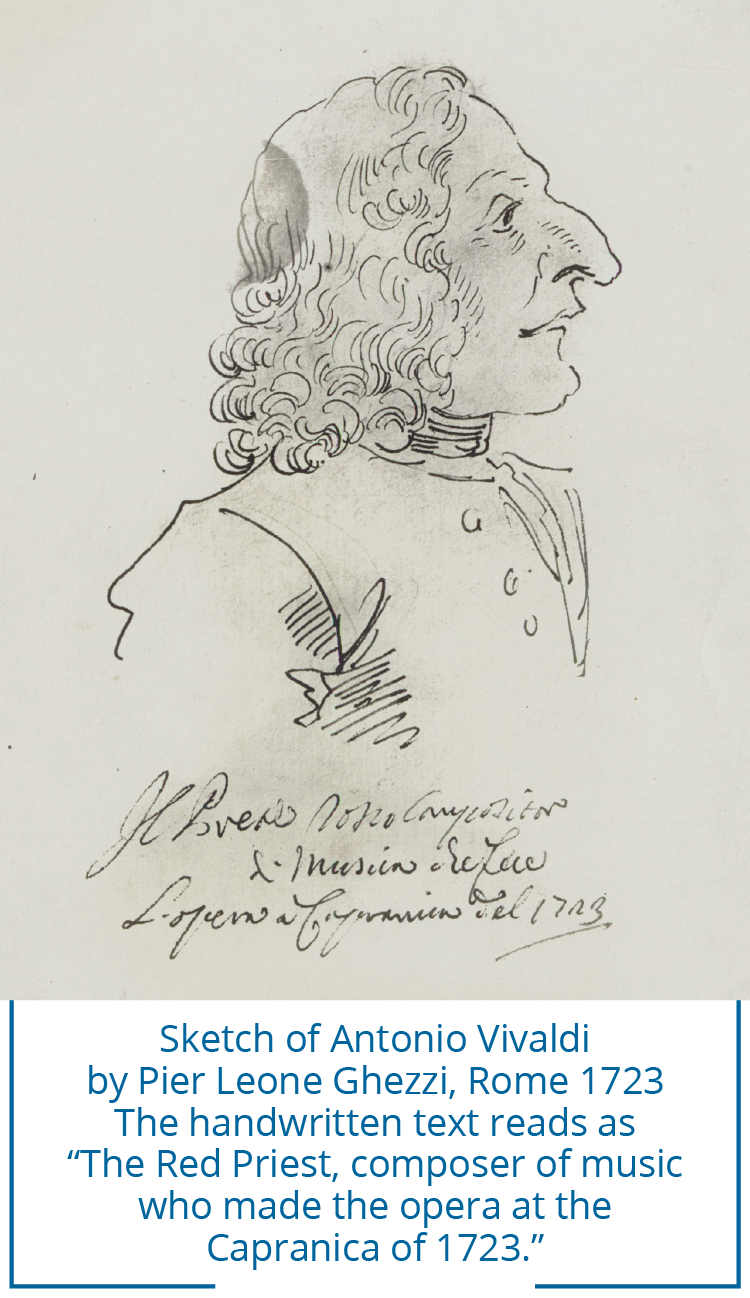 Il Prete rosso Compositore
di Musica che fece
L'opera a Capranica del 1723
Sketch of Antonio Vivaldi
by Pier Leone Ghezzi, Rome 1723
The handwritten text reads as
“The Red Priest, composer of music
who made the opera at the
Capranica of 1723.”